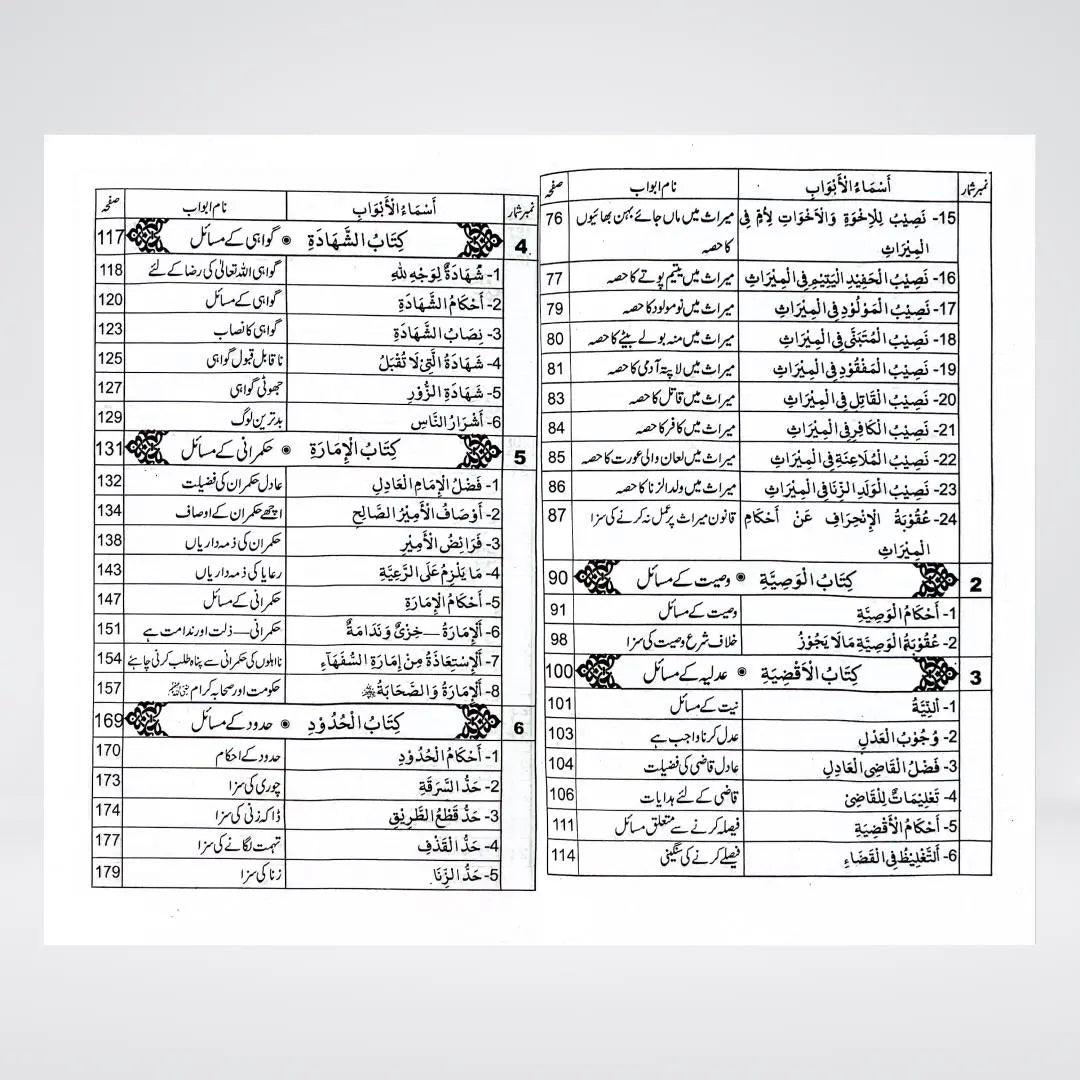 نمبر شمار أَسْمَاءُ الْأَبْوَابِ نام ابواب صفحہ
15- نَصِيْبُ لِلْاِخْوَةِ وَالْاَخَوَاتِ لِاُمٍّ فِي میراث میں ماں جائے بہن بھائیوں 76
الْمِيْرَاثِ کا حصہ
16- نَصِيْبُ الْحَفِيْدِ الْيَتِيْمِ فِي الْمِيْرَاثِ میراث میں یتیم پوتے کا حصہ 77
17- نَصِيْبُ الْمَوْلُوْدِ فِي الْمِيْرَاثِ میراث میں نومولود کا حصہ 79
18- نَصِيْبُ الْمُتَبَنَّى فِي الْمِيْرَاثِ میراث میں منہ بولے بیٹے کا حصہ 80
19- نَصِيْبُ الْمَفْقُوْدِ فِي الْمِيْرَاثِ میراث میں لاپتہ آدمی کا حصہ 81
20- نَصِيْبُ الْقَاتِلِ فِي الْمِيْرَاثِ میراث میں قاتل کا حصہ 83
21- نَصِيْبُ الْكَافِرِ فِي الْمِيْرَاثِ میراث میں کافر کا حصہ 84
22- نَصِيْبُ الْمُلَاعِنَةِ فِي الْمِيْرَاثِ میراث میں لعان والی عورت کا حصہ 85
23- نَصِيْبُ الْوَلَدِ الزِّنَا فِي الْمِيْرَاثِ میراث میں ولد الزنا کا حصہ 86
24- عُقُوْبَةُ الْاِنْحِرَافِ عَنْ أَحْكَامِ قانون میراث پر عمل نہ کرنے کی سزا 87
الْمِيْرَاثِ
2 كِتَابُ الْوَصِيَّةِ ◉ وصیت کے مسائل 90
1- أَحْكَامُ الْوَصِيَّةِ وصیت کے مسائل 91
2- عُقُوْبَةُ الْوَصِيَّةِ مَالَا يَجُوْزُ خلاف شرع وصیت کی سزا 98
3 كِتَابُ الْاَقْضِيَةِ ◉ عدلیہ کے مسائل 100
1- اَلنِّيَّةُ نیت کے مسائل 101
2- وُجُوْبُ الْعَدْلِ عدل کرنا واجب ہے 103
3- فَضْلُ الْقَاضِي الْعَادِلِ عادل قاضی کی فضیلت 104
4- تَعْلِيْمَاتٌ لِلْقَاضِيْ قاضی کے لئے ہدایات 106
5- أَحْكَامُ الْأَقْضِيَةِ فیصلہ کرنے سے متعلق مسائل 111
6- اَلتَّغْلِيْظُ فِي الْقَضَاءِ فیصلے کرنے کی سنگینی 114
نمبر شمار أَسْمَاءُ الْأَبْوَابِ نام ابواب صفحہ
4 كِتَابُ الشَّهَادَةِ ◉ گواہی کے مسائل 117
1- شَهَادَةٌ لِوَجْهِ لِلّٰهِ گواہی اللہ تعالیٰ کی رضا کے لئے 118
2- أَحْكَامُ الشَّهَادَةِ گواہی کے مسائل 120
3- نِصَابُ الشَّهَادَةِ گواہی کا نصاب 123
4- شَهَادَةُ الَّتِيْ لَا تُقْبَلُ ناقابل قبول گواہی 125
5- شَهَادَةُ الزُّوْرِ جھوٹی گواہی 127
6- أَشْرَارُ النَّاسِ بدترین لوگ 129
5 كِتَابُ الْإِمَارَةِ ◉ حکمرانی کے مسائل 131
1- فَضْلُ الْإِمَامِ الْعَادِلِ عادل حکمران کی فضیلت 132
2- أَوْصَافُ الْأَمِيْرُ الصَّالِحِ اچھے حکمران کے اوصاف 134
3- فَرَائِضُ الْأَمِيْرِ حکمران کی ذمہ داریاں 138
4- مَا يَلْزِمُ عَلَى الرَّعِيَّةِ رعایا کی ذمہ داریاں 143
5- أَحْكَامُ الْإِمَارَةِ حکمرانی کے مسائل 147
6- اَلْإِمَارَةُ — خِزْيٌ وَنَدَامَةٌ حکمرانی — ذلت اور ندامت ہے 151
7- اَلْإِسْتِعَاذَةُ مِنْ إِمَارَةِ السُّفَهَاءِ نااہلوں کی حکمرانی سے پناہ طلب کرنی چاہئے 154
8- اَلْإِمَارَةُ وَالصَّحَابَةُ حکومت اور صحابہ کرام 157
6 كِتَابُ الْحُدُوْدِ ◉ حدود کے مسائل 169
1- أَحْكَامُ الْحُدُوْدِ حدود کے احکام 170
2- حَدُّ السَّرَقَةِ چوری کی سزا 173
3- حَدُّ قَطْعُ الطَّرِيْقِ ڈاکہ زنی کی سزا 174
4- حَدُّ الْقَذْفِ تہمت لگانے کی سزا 177
5- حَدُّ الزِّنَا زنا کی سزا 179